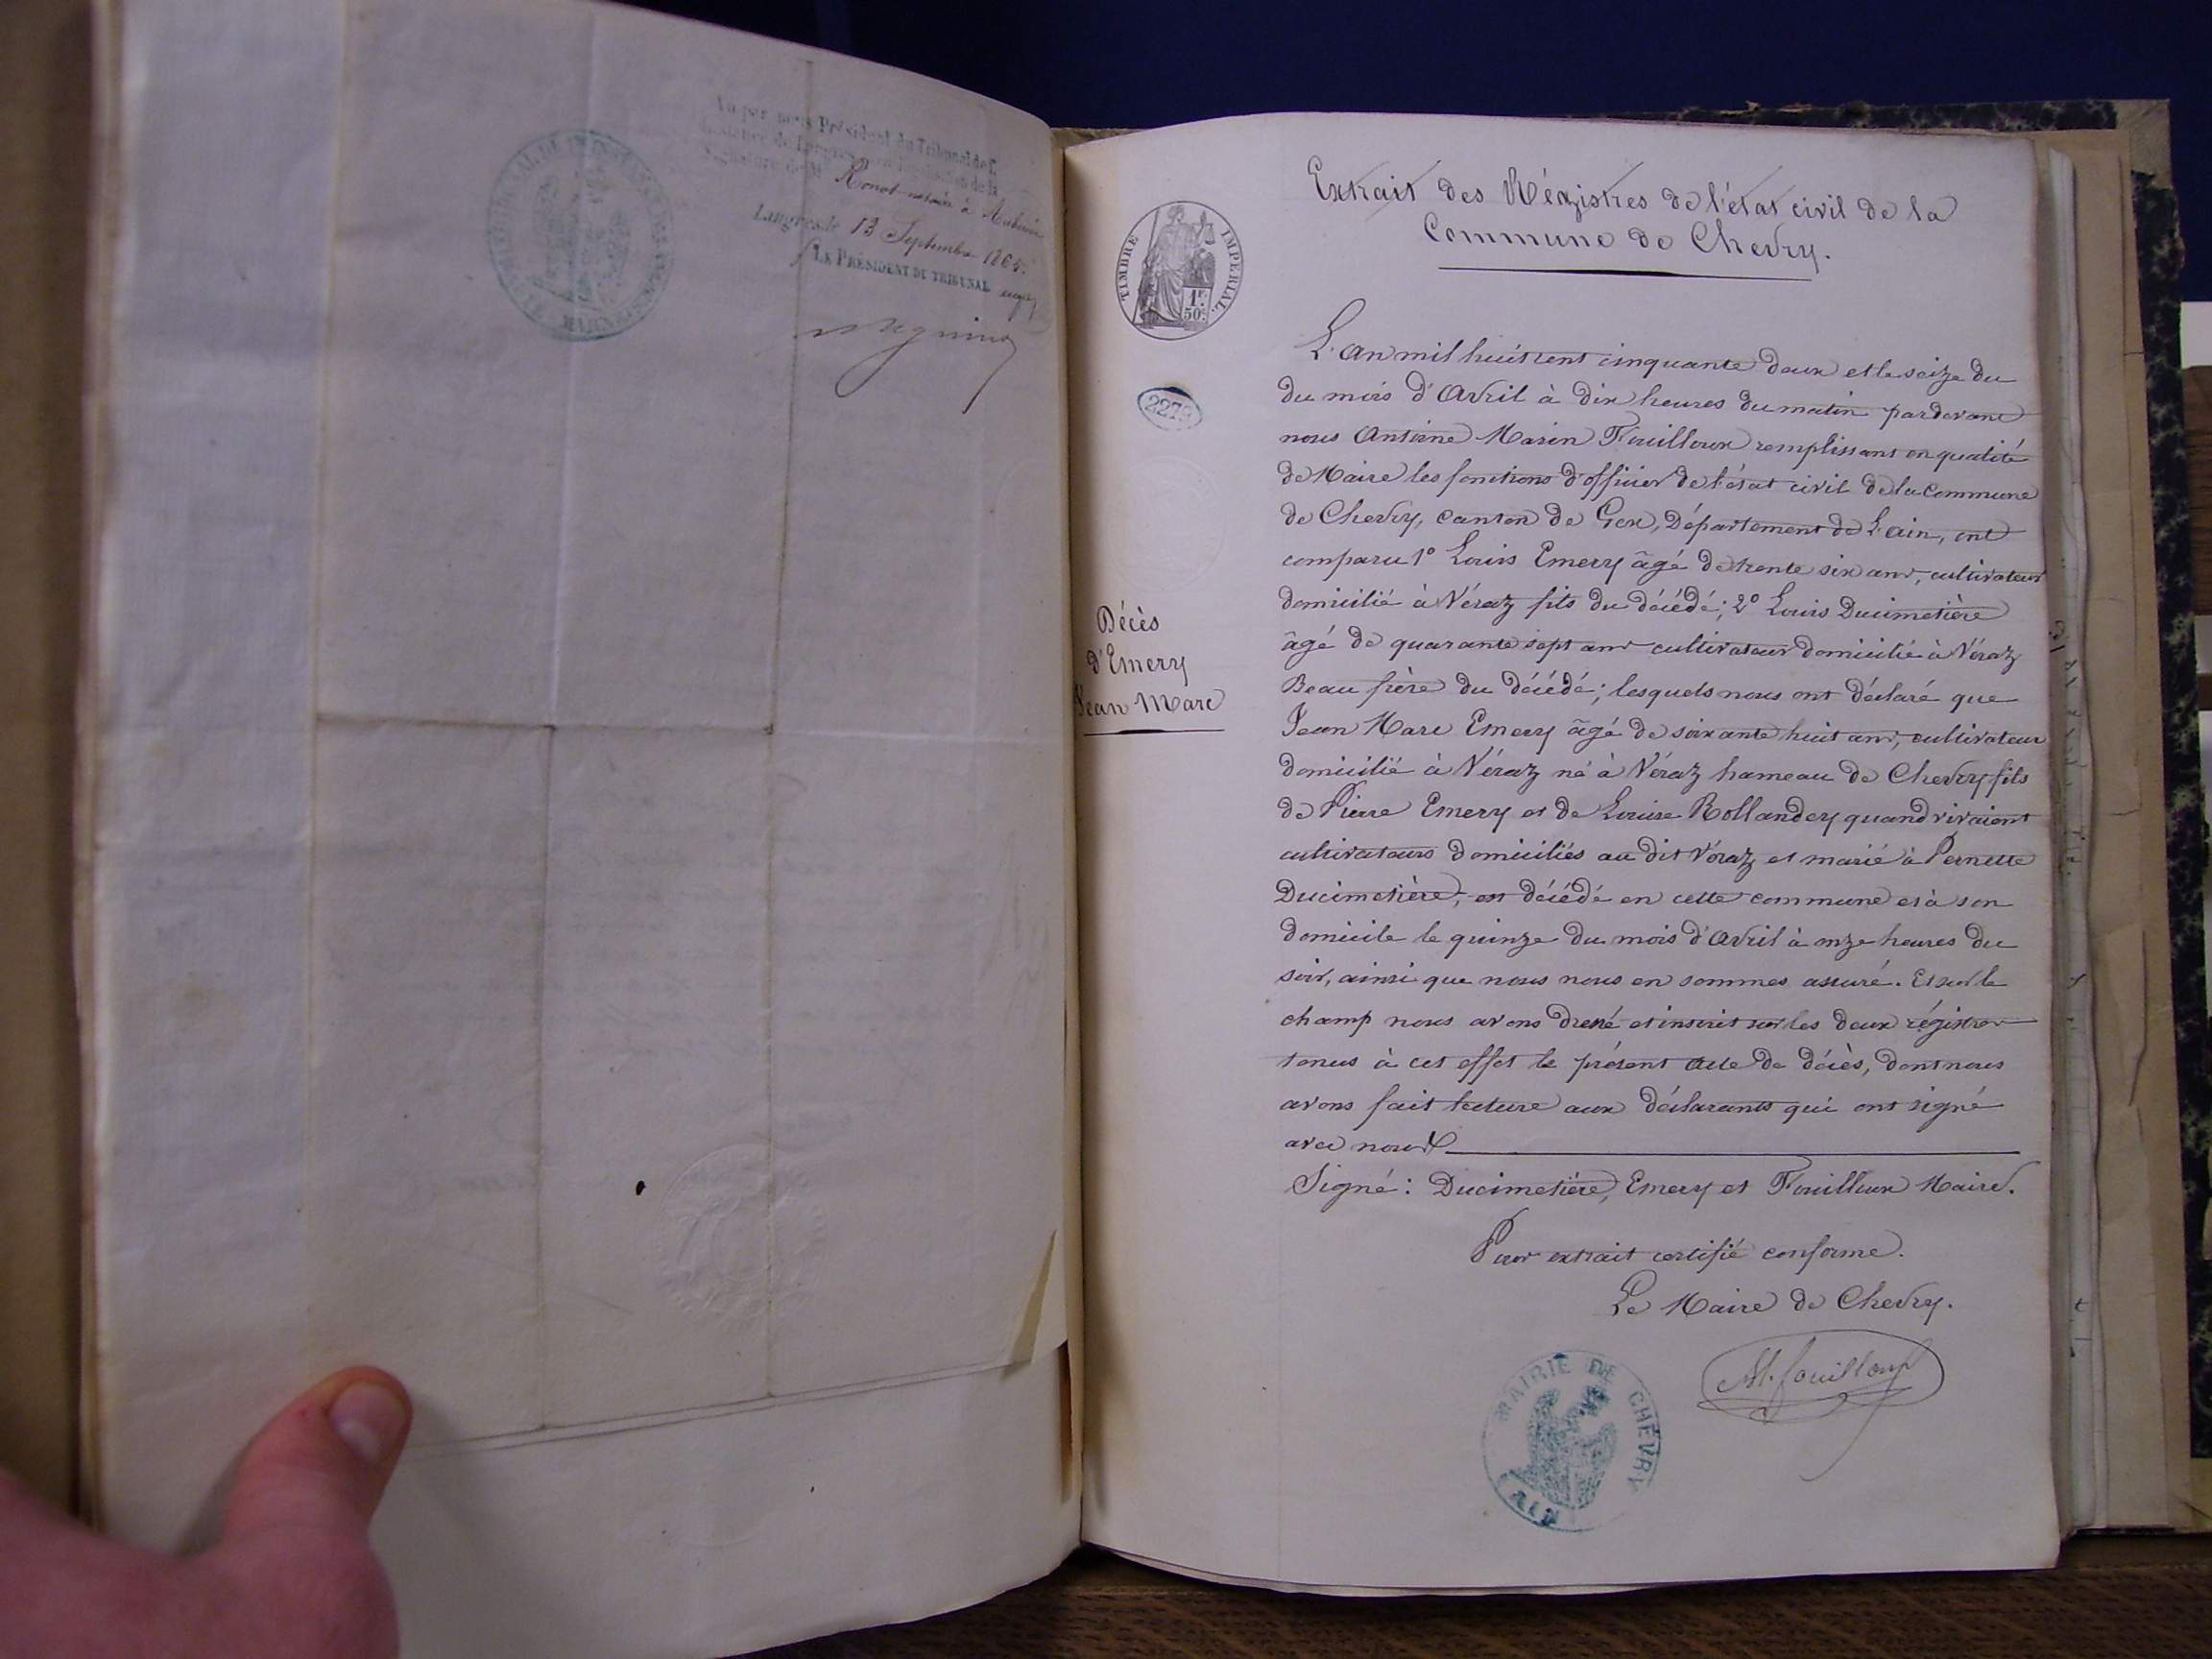 Vu par nous Président du Tribunal de 1.
Instance de Langres
signature de M. Ronot notaire à
Langres le 13 Septembre 1865.
LE PRÉSIDENT DU TRIBUNAL
TIMBRE IMPÉRIAL
1F.
50c.
Décès
d'Emery
Jean Marc
Extrait des Régistres de l'état civil de la
Commune de Chevry.
L'an mil huit cent cinquante deux et le seize du
du mois d'Avril à dix heures du matin pardevant
nous Antoine Marin Fouilloux remplissant en qualité
de Maire les fonctions d'officier de l'état civil de la commune
de Chevry, canton de Gex, Département de L'ain, ont
comparu 1° Louis Emery âgé de trente six ans, cultivateur
domicilié à Véraz fils du décédé; 2° Louis Ducimetière
âgé de quarante sept ans cultivateur domicilié à Véraz
Beau frère du décédé; lesquels nous ont déclaré que
Jean Marc Emery âgé de soixante huit ans, cultivateur
domicilié à Véraz né à Véraz hameau de Chevry fils
de Pierre Emery et de Louise Rollandey quand vivaient
cultivateurs domiciliés au dit Véraz, et marié à Pernette
Ducimetière, est décédé en cette commune et à son
domicile le quinze du mois d'Avril à onze heures du
soir, ainsi que nous nous en sommes assuré. Et sur le
champ nous avons dressé et inscrit sur les deux régistres
tenus à cet effet le présent acte de décès, dont nous
avons fait lecture aux déclarants qui ont signé
avec nous
Signé: Ducimetière, Emery et Fouilloux Maire.
Pour extrait certifié conforme.
Le Maire de Chevry.
M. fouilloux
MAIRIE DE CHEVRY
AIN